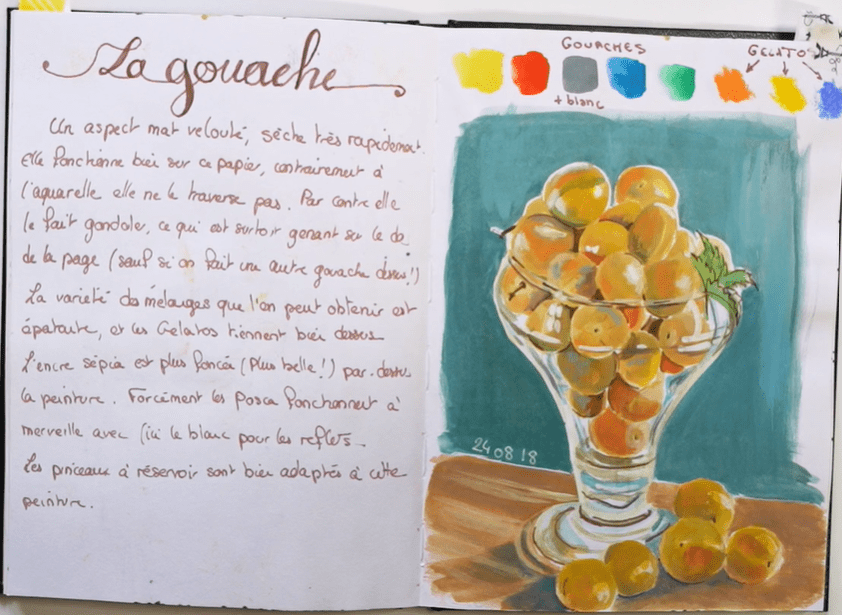 La gouache
Un aspect mat velouté, sèche très rapidement.
Elle fonctionne bien sur ce papier, contrairement à
l'aquarelle elle ne le traverse pas. Par contre elle
le fait gondoler, ce qui est surtout gênant sur le dos
de la page (sauf si on fait une autre gouache dessus!)
La variété des mélanges que l'on peut obtenir est
épatante, et les Gelatos tiennent bien dessus
L'encre sépia est plus foncée (plus belle!) par-dessus
la peinture. Forcément les Posca fonctionnent à
merveille avec (ici le blanc pour les reflets_
Les pinceaux à réservoir sont bien adaptés à cette
peinture.
GOUACHES
+ blanc
GELATOS
24 08 18